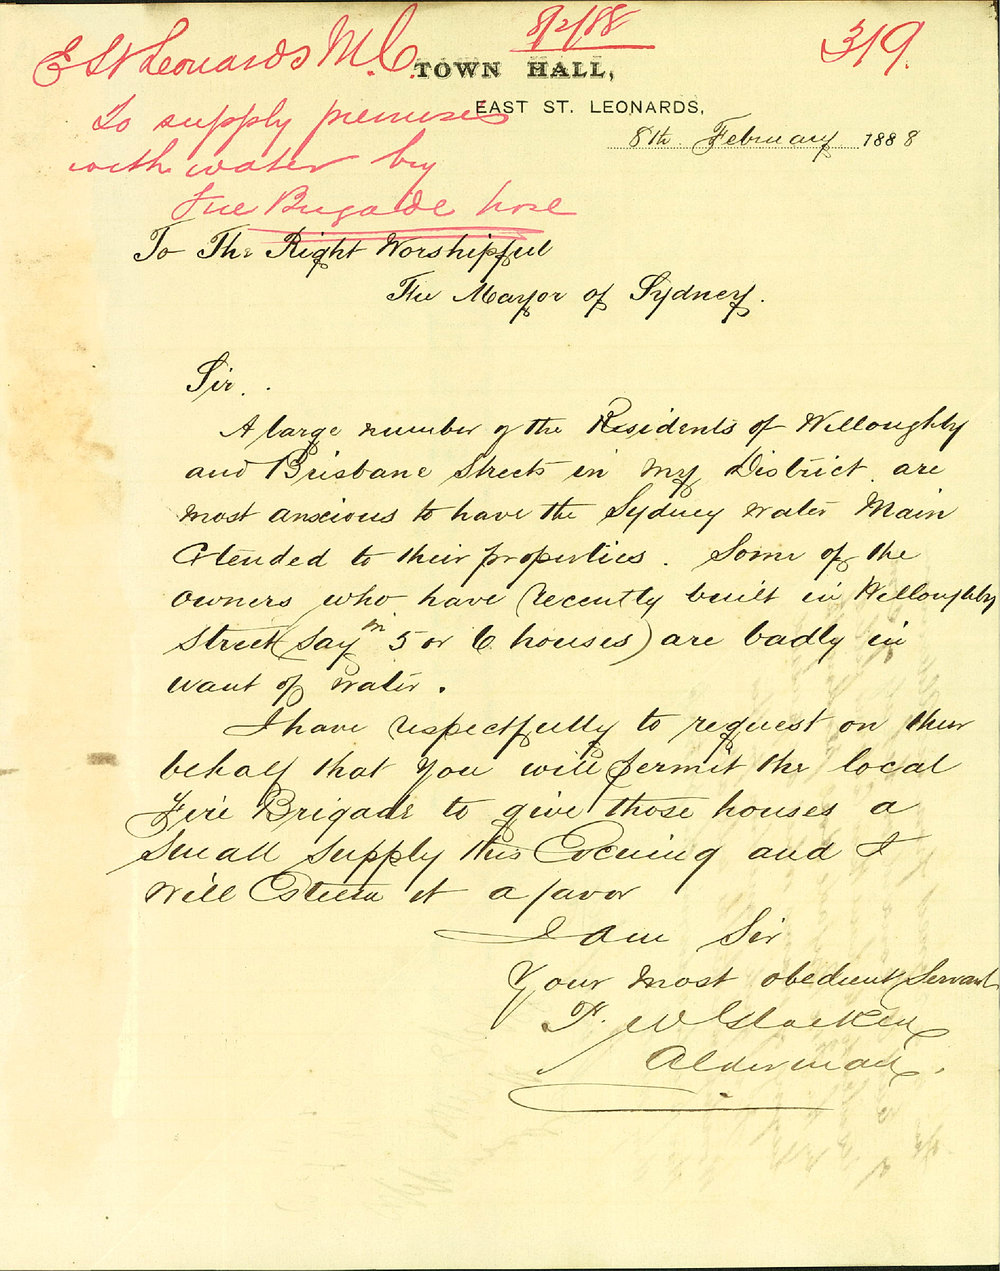 8/2/88
E St Leonards M.C.
319.
TOWN HALL,
EAST ST. LEONARDS,
To supply premises
with water by
Fire Brigade hose
8th February 1888
To The Right Worshipful
The Mayor of Sydney.
Sir.
A large number of the Residents of Willoughby
and Brisbane Streets in my District are
most anxious to have the Sydney Water Main
extended to their properties. Some of the
owners who have recently built in Willoughby
Street (say in 5 or 6 houses) are badly in
want of water.
I have respectfully to request on their
behalf that you will permit the local
Fire Brigade to give those houses a
small supply this Evening and I
will Esteem it a favor
I am Sir
Your most obedient Servant
F. W.
Alderman.